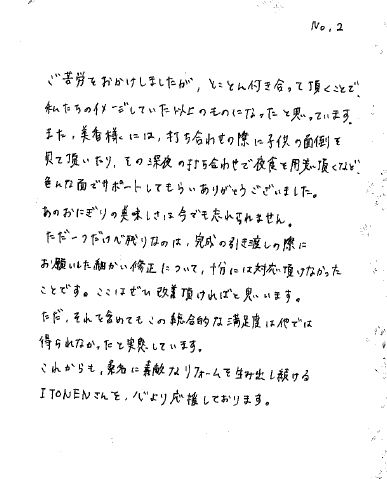 No.2
ご苦労をおかけしましたが、とことん付き合って頂くことで、
私たちのイメージしていた以上のものになったと思っています。
また、美香様には、打ち合わせの際に子供の面倒を
見て頂いたり、その深夜の打ち合わせで夜食を用意頂くなど、
色んな面でサポートしてもらいありがとうございました。
あのおにぎりの美味しさは今でも忘れられません。
ただ一つだけ心残りなのは、完成の引き渡しの際に
お願いした細かい修正について、十分には対応頂けなかった
ことです。ここはぜひ改善頂ければと思います。
ただ、それを含めてもこの総合的な満足度は他では
得られなかったと実感しています。
これからも、に素敵なリフォームを生み出し続ける
ITONENさんを、心より応援しております。